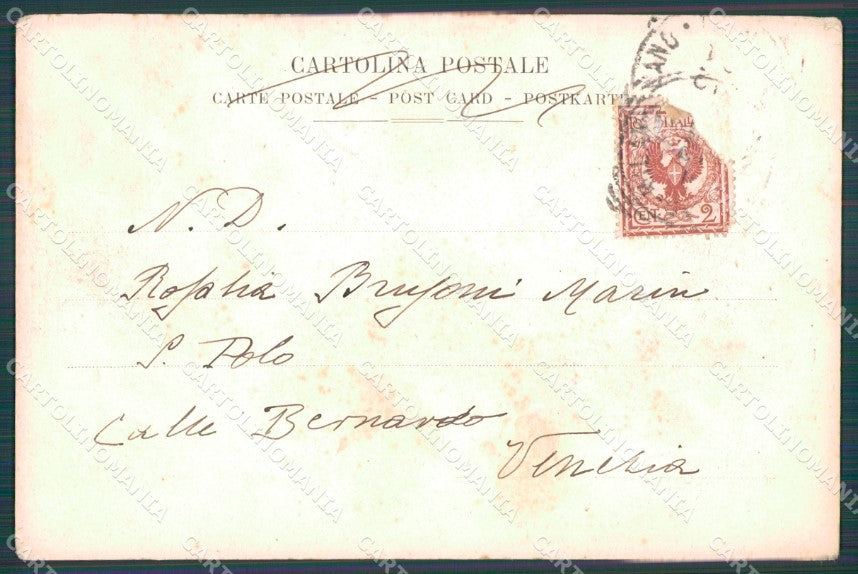 CARTOLINA POSTALE
CARTE POSTALE - POST CARD - POSTKART
ANO
CEN 2
N. D.
Rosalia Brusoni Marin
S. Polo
Calle Bernardo
Venezia
CARTOLINOMANIA